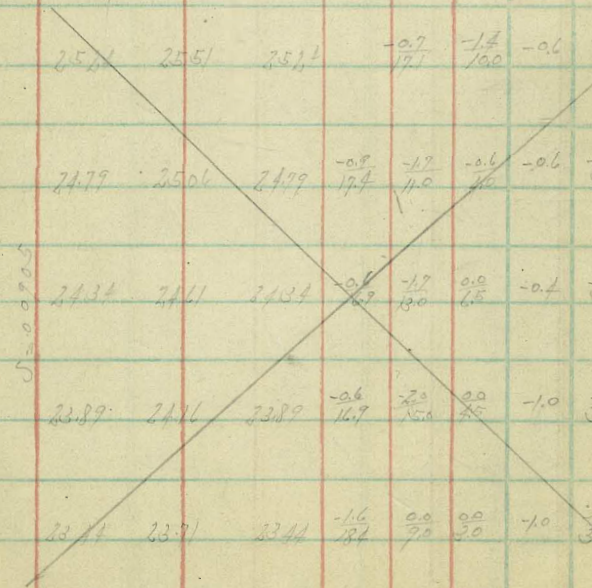 25.24 25.51 25.24 -0.7/17.1 -1.4/10.0 -0.6
24.79 25.06 24.79 -0.9/17.4 -1.7/11.0 -0.6/4.0 -0.6
S=0.00905
24.34 24.61 24.34 -1.7/13.0 0.0/6.5 -0.4
23.89 24.16 23.89 -0.6/16.9 -2.0/15.0 0.0/4.5 -1.0
23.44 23.71 23.44 -1.6/18.4 0.0/9.0 0.0/3.0 -1.0